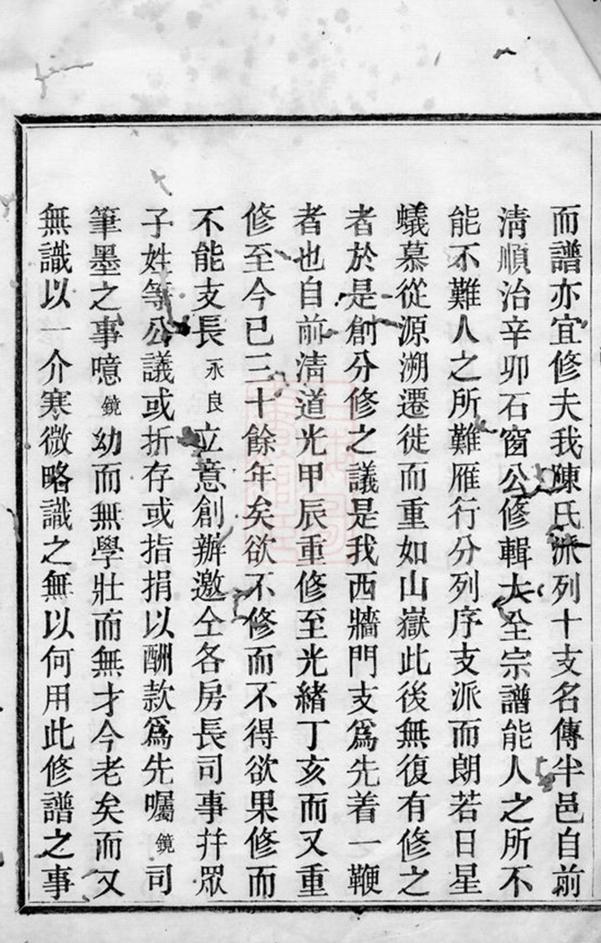 而譜亦宜修夫我陳氏派列十支名傳半邑自前
清順治辛卯石窗公修輯大全宗譜能人之所不
能不難人之所難雁行分列序支派而朗若日星
蟻慕從源溯遷徙而重如山嶽此後無復有修之
者於是創分修之議是我西牆門支爲先着一鞭
者也自前清道光甲辰重修至光緒丁亥而又重
修至今已三十餘年矣欲不修而不得欲果修而
不能支長永良立意創辦邀仝各房長司事幷眾
子姓等公議或折存或指捐以酬款爲先囑鏡司
筆墨之事噫鏡幼而無學壯而無才今老矣而又
無識以一介寒微略識之無以何用此修譜之事